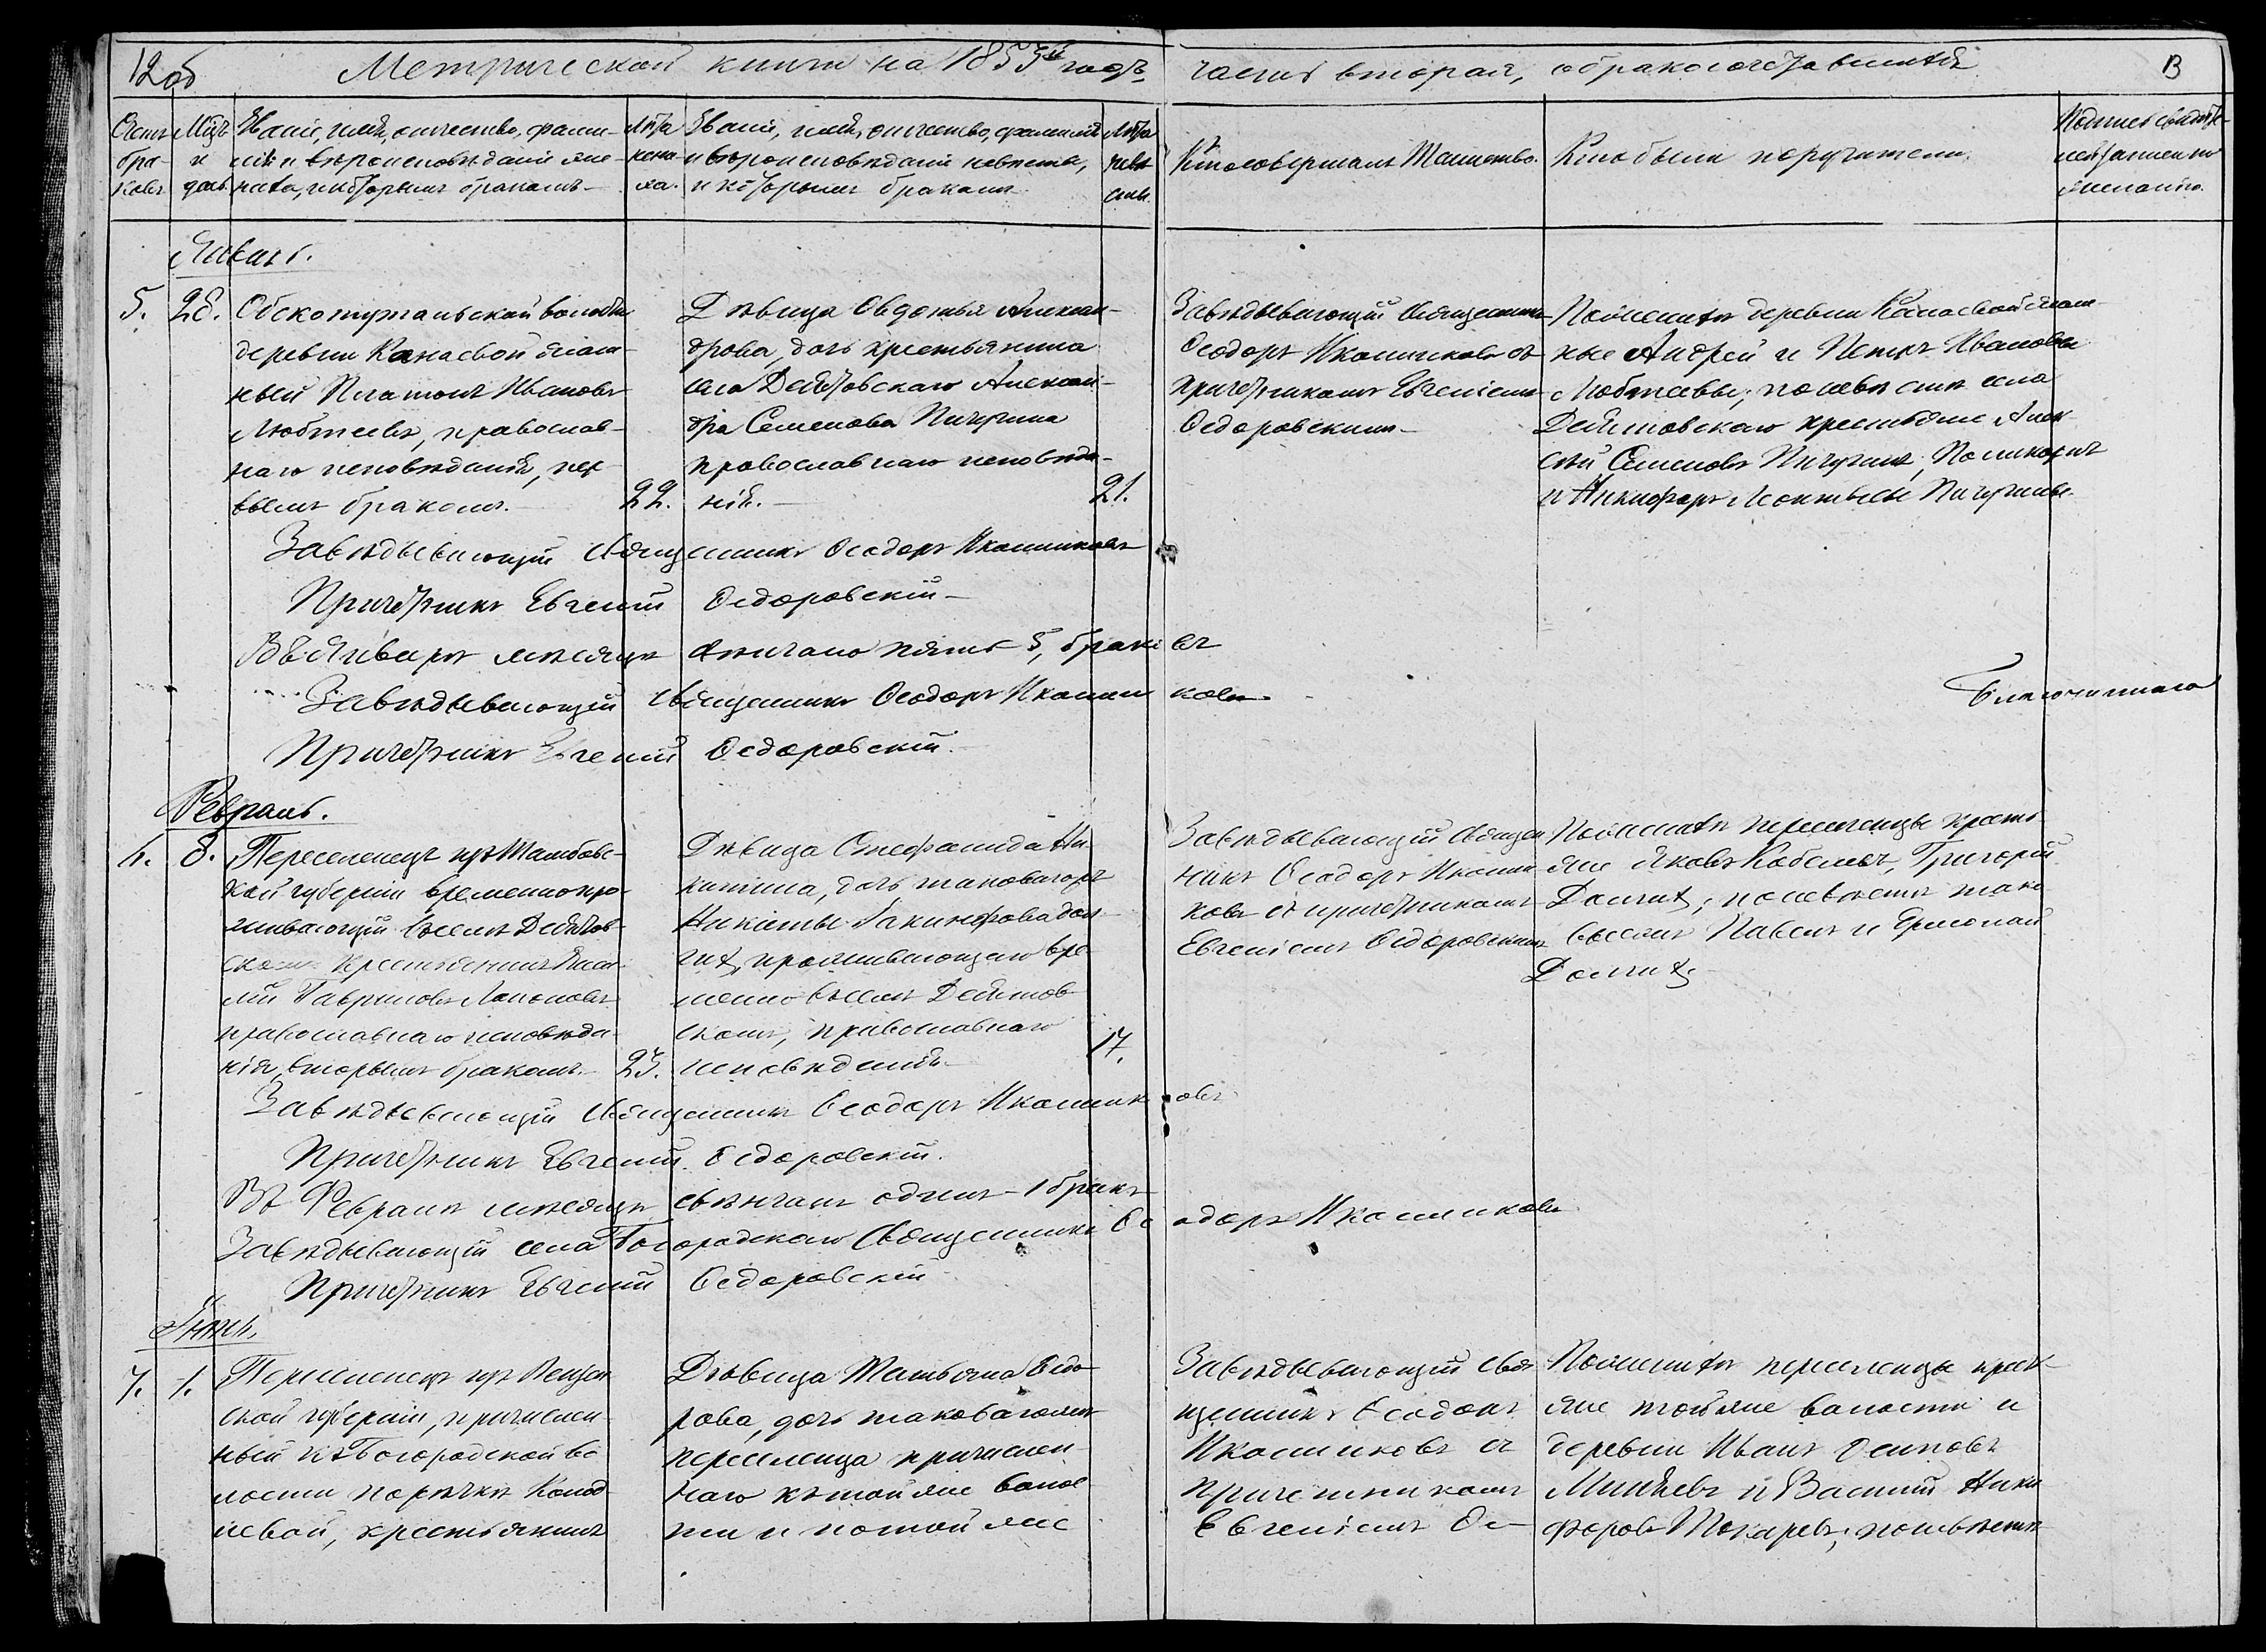 12об
Метрической книги на 1853й годъ
часть вторая, о бракосочетавшихся
13
Счетъ браковъ
Мѣсяцъ и день
Званіе, имя, отчество, фами-
лія и вѣроисповѣданіе же-
ниха, и которымъ бракомъ
Лѣта жени-
ха.
Званіе, имя, отчество, фамилія
и вѣроисповѣданіе невѣсты,
и которымъ бракомъ
Лѣта невѣ-
сты.
Кто совершалъ Таинство.
Кто были поручители.
Подпись свидѣте-
лей записи по
желанію.
Январь.
5.
28.
Обскотутальской волости
деревни Канаевой ясаш-
ный Платонъ Ивановъ
Любтеевъ, православ-
наго исповѣданія, пер-
вымъ бракомъ.
22.
Дѣвица Овдотья Алексан-
дрова, дочь крестьянина
села Дебятовскаго Алексан-
дра Семенова Пичугина
православнаго исповѣда-
нія.
21.
Завѣдывающій Священникъ
Ѳеодоръ Иконниковъ съ
причетникомъ Евгеніемъ
Ѳедоровскимъ
По женихѣ деревни Канаевой ясаш-
ные Андрей и Петръ Ивановы
Любтеевы; по невѣстѣ села
Дебятовскаго крестьяне Алек-
сѣй Семеновъ Пичугинъ, Поликарпъ
и Никифоръ Леонтьевы Пичугины.
Завѣдывающій Священникъ Ѳеодоръ Иконниковъ
Причетникъ Евгеній Ѳедоровскій
Въ Январѣ мѣсяцѣ вѣнчано пять 5, браковъ
Завѣдывающій Священникъ Ѳеодоръ Иконниковъ
Благочиннаго
Причетникъ Евгеній Ѳедоровскій.
Февраль.
6.
8.
Переселенецъ изъ Тамбовс-
кой губерніи временно про-
живающій въ селѣ Дебятов-
скомъ крестьянинъ Васи-
лій Гавриловъ
православнаго исповѣда-
нія, вторымъ бракомъ.
23.
Дѣвица Стефанида Ни-
китина, дочь таковагожъ
Никиты Іакинѳова Дол-
гихъ, проживающаго вре-
менно въ селѣ Дебятов-
скомъ, православнаго
исповѣданія
17.
Завѣдывающій Священ-
никъ Ѳеодоръ Иконни-
ковъ съ причетникомъ
Евгеніемъ Ѳедоровскимъ
По женихѣ переселенцы кресть-
яне Яковъ Кобелевъ, Григорій
Долгихъ; по невѣстѣ тако
выежъ Павелъ и Ермолай
Долгихъ
Завѣдывающій Священникъ Ѳеодоръ Иконниковъ
Причетникъ Евгеній Ѳедоровскій.
Въ Февралѣ мѣсяцѣ вѣнчанъ одинъ - 1 бракъ
Завѣдывающій села Богородскаго Священникъ Ѳеодоръ Иконниковъ
Причетникъ Евгеній Ѳедоровскій
7.
1.
Переселенецъ изъ Пензен-
ской губерніи, причислен-
ный къ Богородской во-
лости по рѣчкѣ
крестьянинъ
Дѣвица Татьяна Ѳедо-
рова, дочь таковагоже
переселенца причислен-
наго къ той же волос-
ти и по той же
Завѣдывающій Свя-
щенникъ Ѳеодоръ
Иконниковъ съ
причетникомъ
Евгеніемъ Ѳе-
По женихѣ переселенцы крест-
яне той же волости и
деревни Иванъ Осиповъ
Минѣевъ и Василій Ники-
форовъ Токаревъ; по невѣстѣ